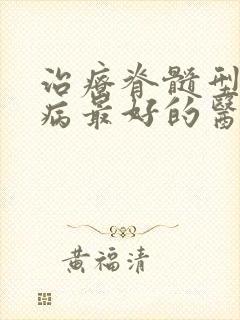 治療脊髓型
病最好的醫
黃福清